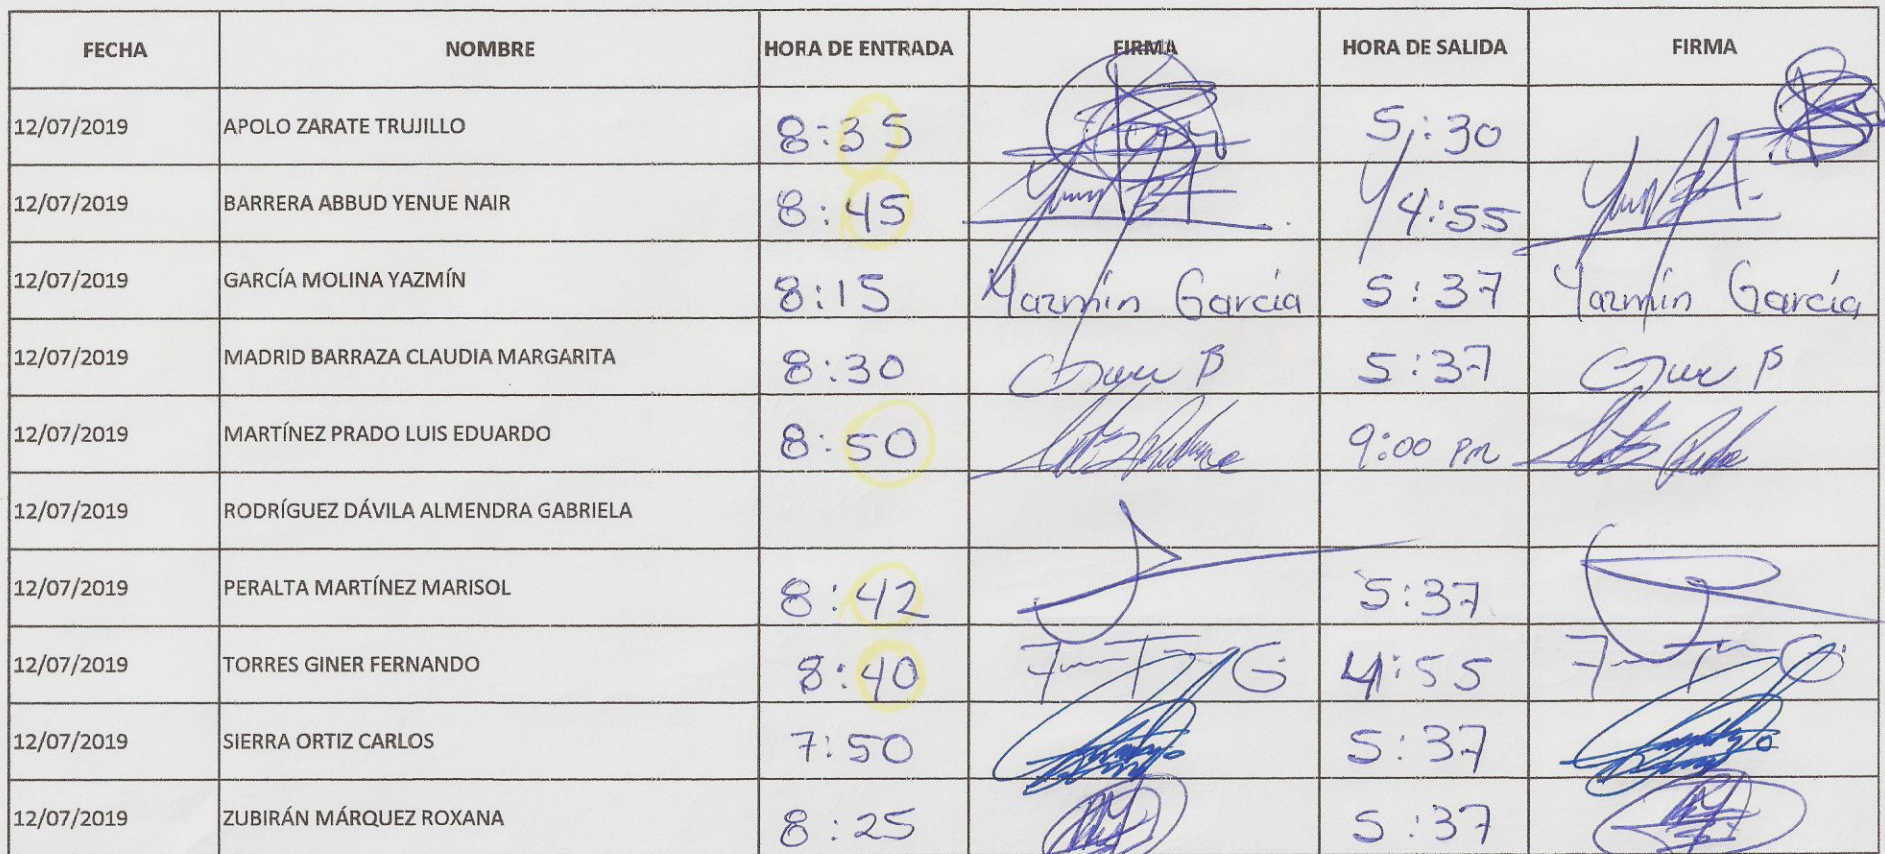 FECHA NOMBRE HORA DE ENTRADA FIRMA HORA DE SALIDA FIRMA
12/07/2019 APOLO ZARATE TRUJILLO 8:35 5:30
12/07/2019 BARRERA ABBUD YENUE NAIR 8:45 4:55
12/07/2019 GARCÍA MOLINA YAZMÍN 8:15 Yazmín García 5:37 Yazmín García
12/07/2019 MADRID BARRAZA CLAUDIA MARGARITA 8:30 5:37
12/07/2019 MARTÍNEZ PRADO LUIS EDUARDO 8:50 9:00 PM
12/07/2019 RODRÍGUEZ DÁVILA ALMENDRA GABRIELA
12/07/2019 PERALTA MARTÍNEZ MARISOL 8:42 5:37
12/07/2019 TORRES GINER FERNANDO 8:40 4:55
12/07/2019 SIERRA ORTIZ CARLOS 7:50 5:37
12/07/2019 ZUBIRÁN MÁRQUEZ ROXANA 8:25 5:37